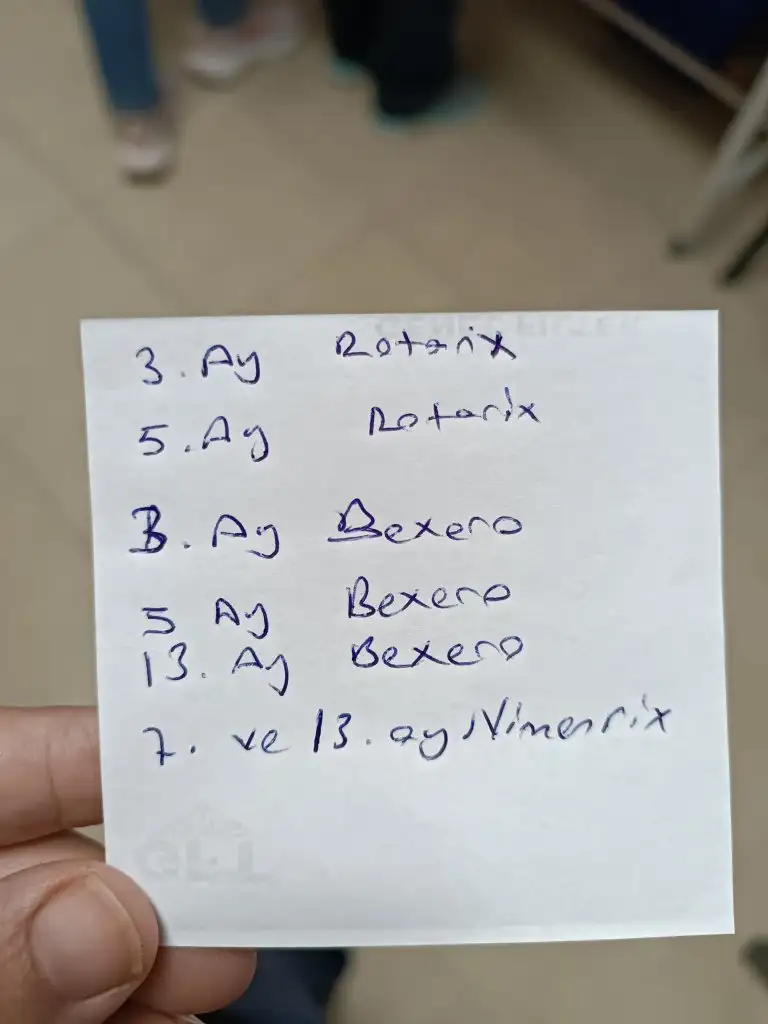 3. Ay Rotarix
5. Ay Rotarix
3. Ay Bexero
5 Ay Bexero
13. Ay Bexero
7. ve 13. ay Nimenrix